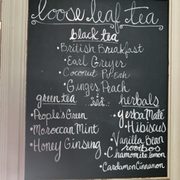 loose leaf tea
black tea
• British Breakfast
• Earl Greyer
• Coconut
• Ginger Peach
green tea
• People's Green
• Moroccan Mint
• Honey Ginseng
herbals
• Yerba Mate
• Hibiscus
• Vanilla Bean
rooibos
• Chamomile Lemon
• Cardamon Cinnamon